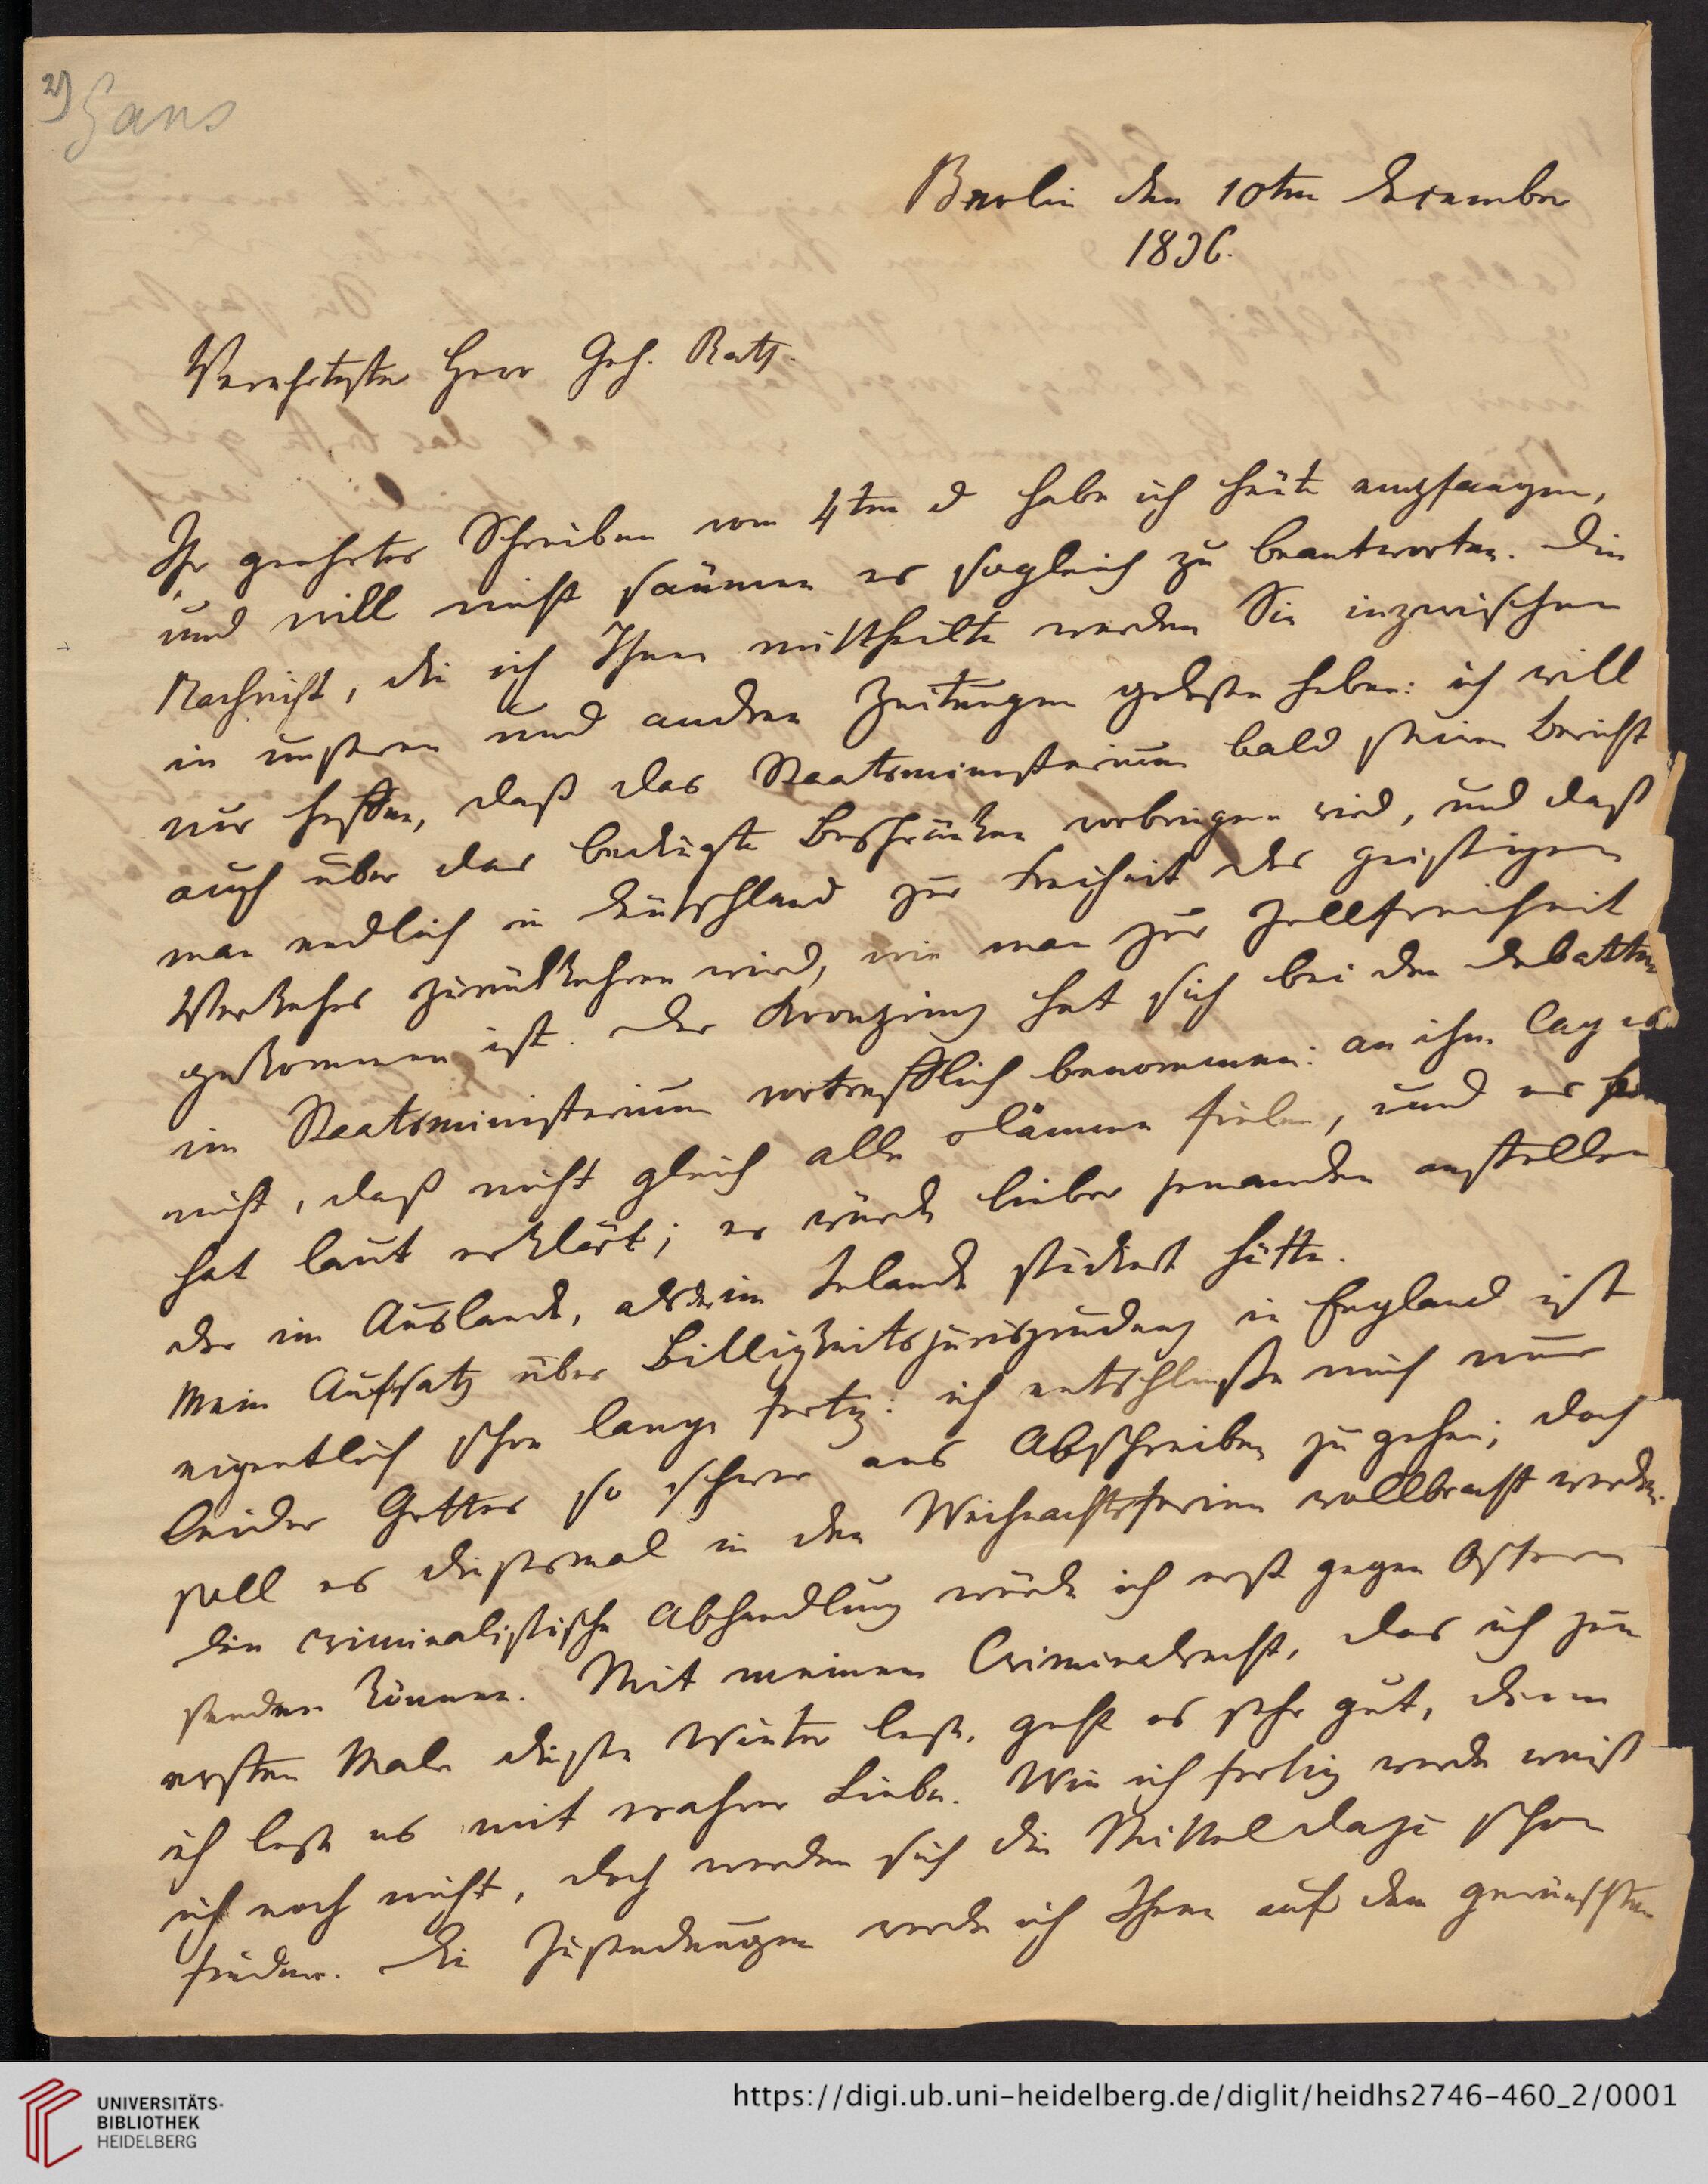 2) Gans
Berlin den 10ten December
1836.
Verehrtester Herr Geh. Rath.
Ihr geehrtes Schreiben vom 4ten d habe ich heute empfangen,
und will nicht säumen es sogleich zu beantworten. Die
Nachricht, die ich Ihnen mittheilte werden Sie inzwischen
in unseren und andren Zeitungen gelesen haben: ich will
nur hoffen, daß das Staatsministerium bald seinen Bericht
auch über das bedingte Beschränken vorbringen wird, und daß
man endlich in Deutschland zur Freiheit des geistigen
Verkehrs zurückkehren wird, wie man zur Zollfreiheit
gekommen ist. Der Kronprinz hat sich bei den Debatten
im Staatsministerium vortrefflich benommen: an ihm lag es
nicht, daß nicht gleich alle Dämme fielen, und er
hat laut erklärt; er würde lieber jemanden anstellen
der im Auslande, als der im Inlande studiert hätte.
Mein Aufsatz über Billigkeitsjurisprudenz in England ist
eigentlich schon lange fertig: ich entschließe mich nur
leider Gottes so schwer ans Abschreiben zu gehen; doch
soll es diesesmal in den Weihnachtsferien vollbracht werden.
Die criminalistische Abhandlung würde ich erst gegen Ostern
senden können. Mit meinem Criminalrecht, das ich zum
ersten Male diesen Winter lese, geht es sehr gut, denn
ich lese es mit wahrer Liebe. Wie ich fertig werde weiß
ich noch nicht, doch werden sich die Mittel dazu schon
finden. Die Zusendungen werde ich Ihnen auf dem gewünschten
UNIVERSITÄTS-
BIBLIOTHEK
HEIDELBERG
https://digi.ub.uni-heidelberg.de/diglit/heidhs2746-460_2/0001